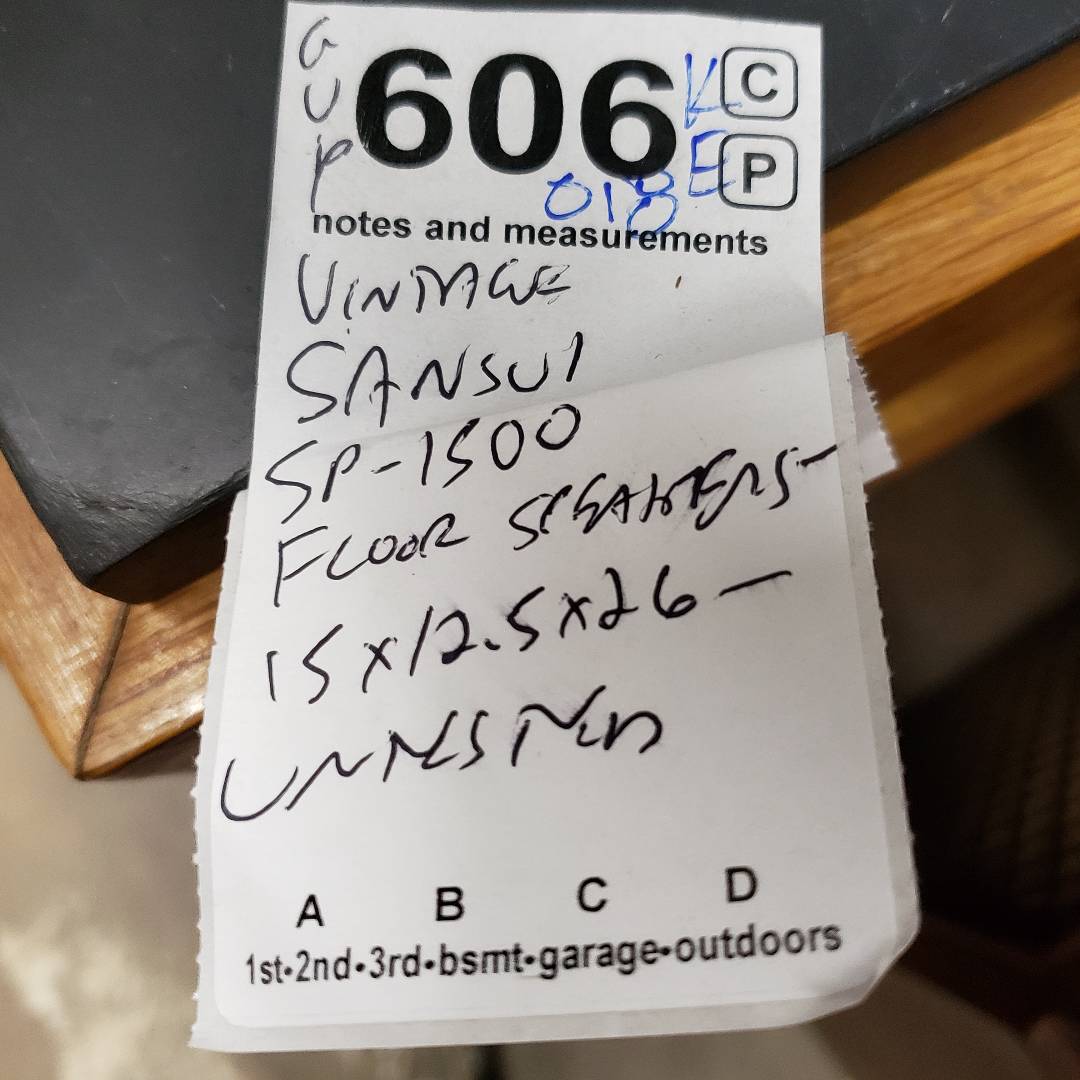 GUP
606
K C
E P
018
notes and measurements
VINTAGE
SANSUI
SP-1500
FLOOR SPEAKERS-
15x12.5x26-
UNTESTED
A B C D
1st•2nd•3rd•bsmt•garage•outdoors